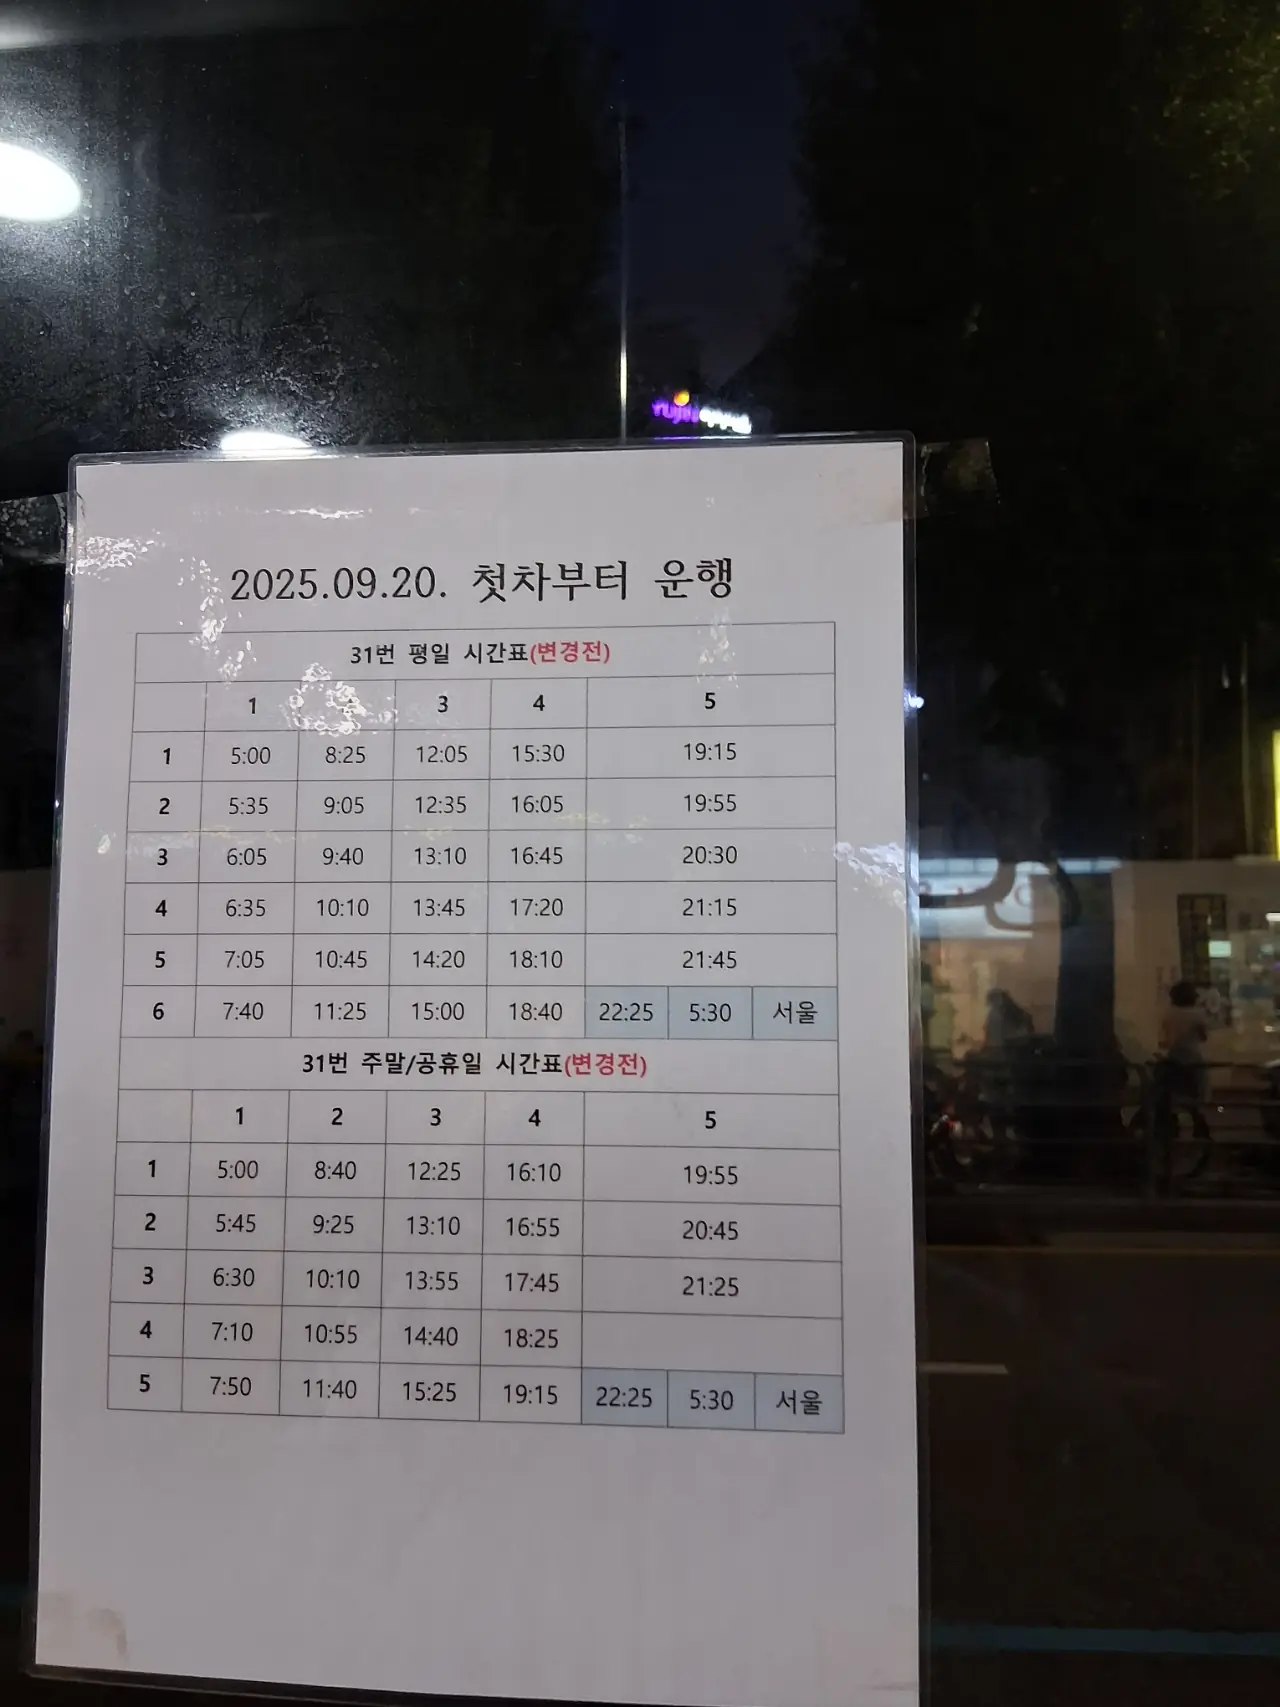 YUJIN
2025.09.20. 첫차부터 운행
31번 평일 시간표(변경전)
1 3 4 5
1 5:00 8:25 12:05 15:30 19:15
2 5:35 9:05 12:35 16:05 19:55
3 6:05 9:40 13:10 16:45 20:30
4 6:35 10:10 13:45 17:20 21:15
5 7:05 10:45 14:20 18:10 21:45
6 7:40 11:25 15:00 18:40 22:25 5:30 서울
31번 주말/공휴일 시간표(변경전)
1 2 3 4 5
1 5:00 8:40 12:25 16:10 19:55
2 5:45 9:25 13:10 16:55 20:45
3 6:30 10:10 13:55 17:45 21:25
4 7:10 10:55 14:40 18:25
5 7:50 11:40 15:25 19:15 22:25 5:30 서울